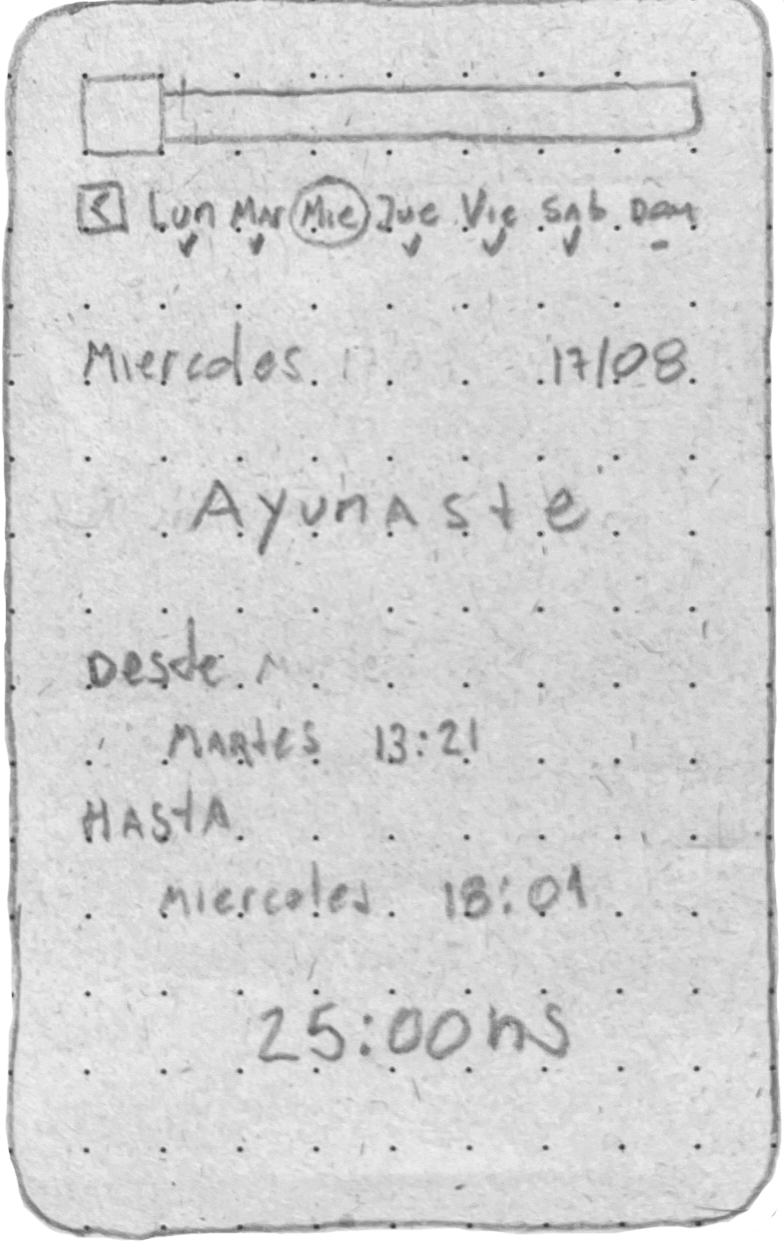 < Lun Mar Mie Jue Vie Sab Dom
✓ ✓ ✓ ✓ ✓ -
Miercoles 17/08
Ayunaste
Desde
Martes 13:21
HASTA
Miercoles 18:01
25:00 hs